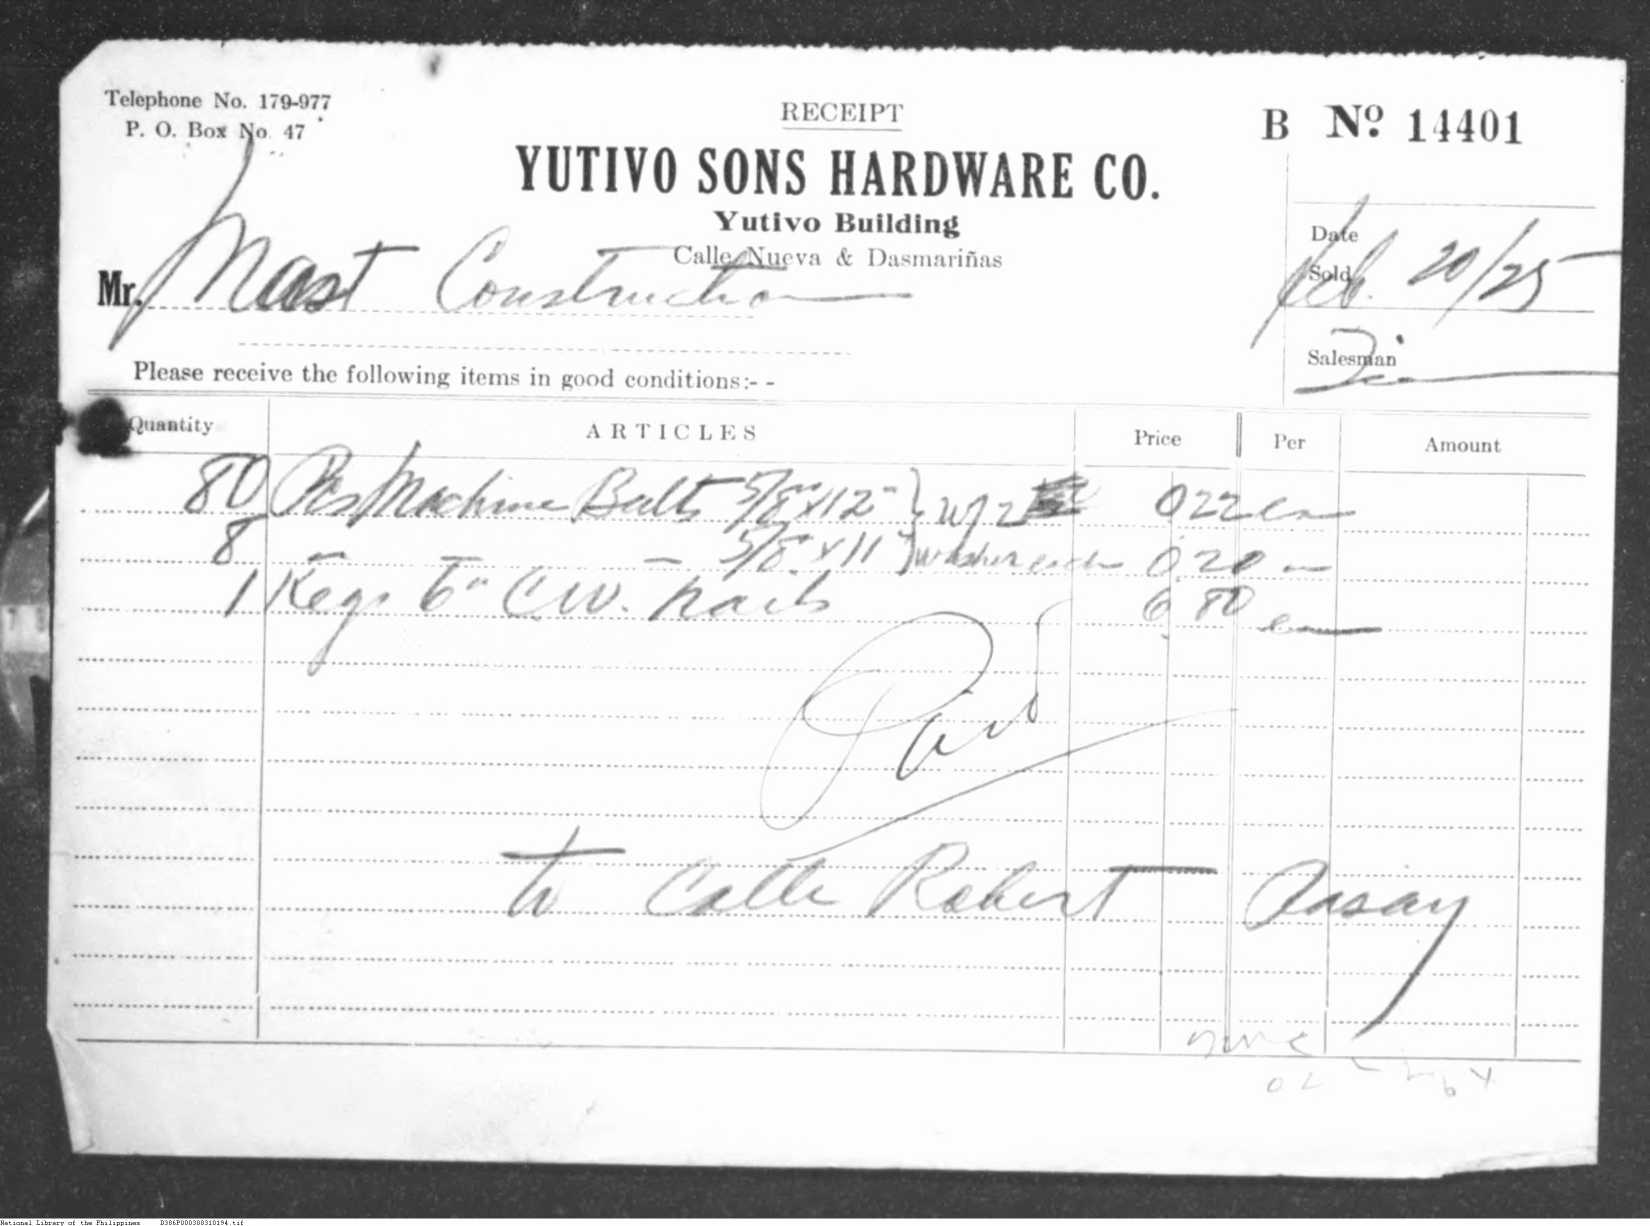 Telephone No. 179-977
P. O. Box No. 47
RECEIPT
B Nº 14401
YUTIVO SONS HARDWARE CO.
Yutivo Building
Calle Nueva & Dasmariñas
Date Sold Feb. 20/25
Mr. Mast Construction
Salesman
Please receive the following items in good conditions:- -
Quantity ARTICLES Price Per Amount
80 Pcs Machine Bolts 5/8" x 12" } w/ 2 0 22 ea
8 " " – 5/8" x 11" } washer each 0 20 ea
1 Kegs 6" C.W. nails 6 80 ea
Paid
to Calle Robert Pasay
National Library of the Philippines D386P000308310194.tif